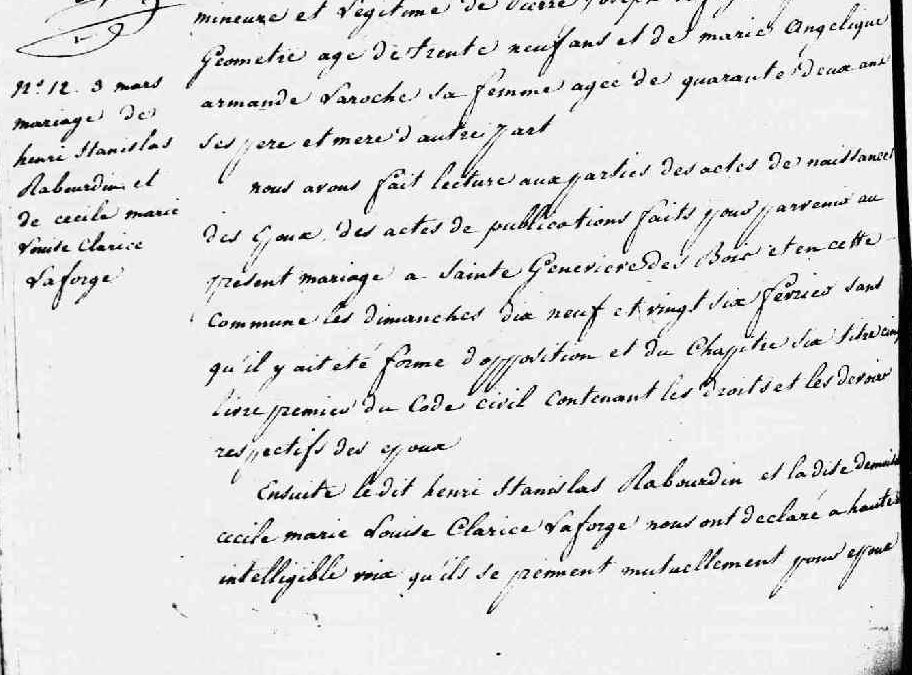 N.o 12. 3 mars
mariage de
henri Stanislas
Rabourdin et
de cecile marie
Louise Clarice
Laforge
mineure et Legitime de Pierre Joseph
Geometre age de trente neuf ans et de marie Angelique
armande Laroche sa femme agee de quarante deux ans
ses pere et mere d'autre part
nous avons fait lecture aux parties des actes de naissances
des Epoux, des actes de publications faits pour parvenir au
present mariage a Sainte Genevieve des Bois et en cette
commune les dimanches dix neuf et vingt six fevrier sans
qu'il y ait eté formé d'opposition et du Chapitre six titre cinq
livre premier du Code civil contenant les droits et les devoirs
respectifs des epoux
Ensuite ledit henri Stanislas Rabourdin et ladite demoiselle
cecile marie Louise Clarice Laforge nous ont declaré a haute et
intelligible voix qu'ils se prennent mutuellement pour epoux